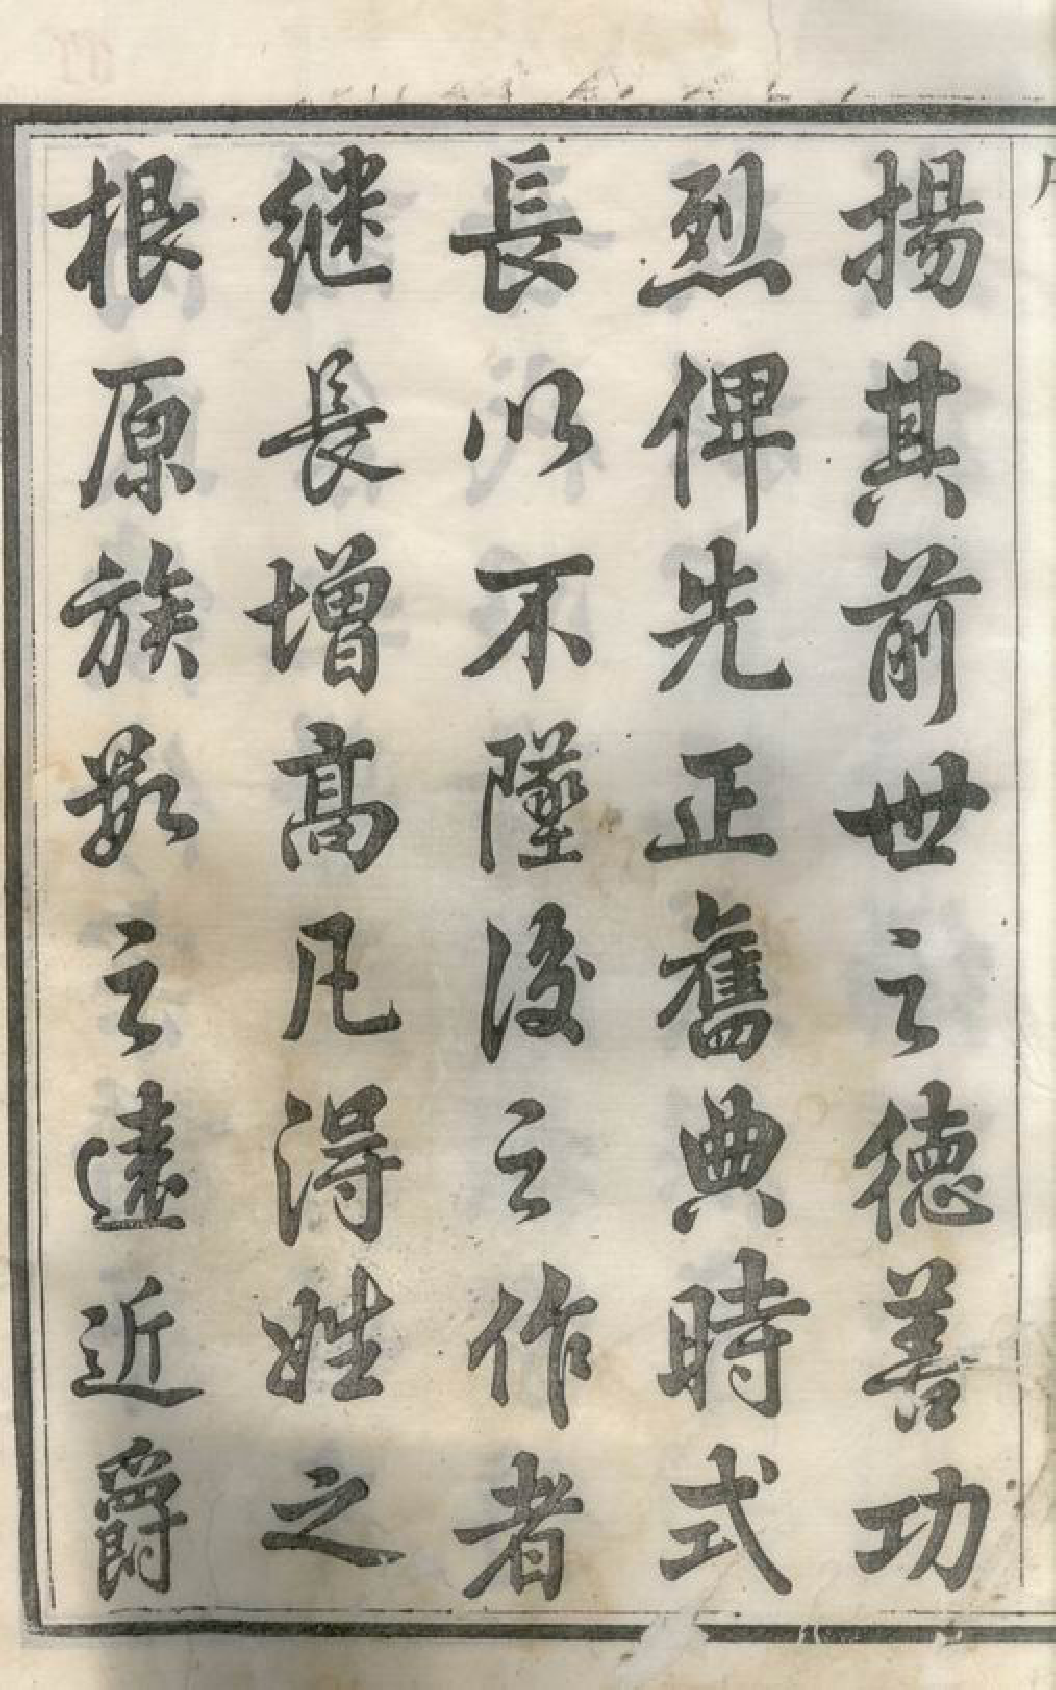 揚其前世之德善功
烈俾先正舊典時式
長以不墜後之作者
継長增高凡得姓之
根原族㪽之遠近爵